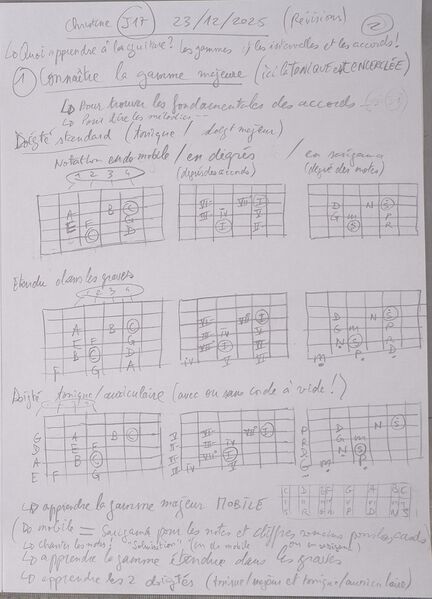 Christine J17 23/12/2025 (Révisions) 2
↳ Quoi apprendre à la guitare? Les gammes, les intervalles et les accords!
① Connaître la gamme majeure (ici la TONIQUE EST ENCERCLÉE)
↳ Pour trouver les fondamentales des accords
↳ Pour lire les mélodies...
Doigté standard (tonique / doigt majeur)
Notation en do mobile / en degrés / en sargama
(degrés des accords) (degré des notes)
1 2 3 4
A B C
E F G
B C D
VII I
III IV V
VII I II
D N S
G m P
N S R
Etendu dans les graves
1 2 3 4
A B C
E F G
B C D
G A
F G A
VI VII I
III IV V
VII I II
V VI
IV V VI
D N S
G m P
N S R
P D
m P D
Doigté tonique/auriculaire (avec ou sans corde à vide!)
G A B C
D E F
A B C
E F G
V VI VII I
II III IV
VI VII I
III IV V
P D N S
R G m
D N S
G m P
↳ apprendre la gamme majeur MOBILE
C D E F G A B C
S R G m P D N S
(↳ mobile = Sargama pour les notes et chiffres romains pour les accords
↳ Chanter les notes: "Solmisation" (en do mobile ou en sargama)
↳ apprendre la gamme étendue dans les graves
↳ apprendre les 2 doigtés (tonique/majeur et tonique/auriculaire)